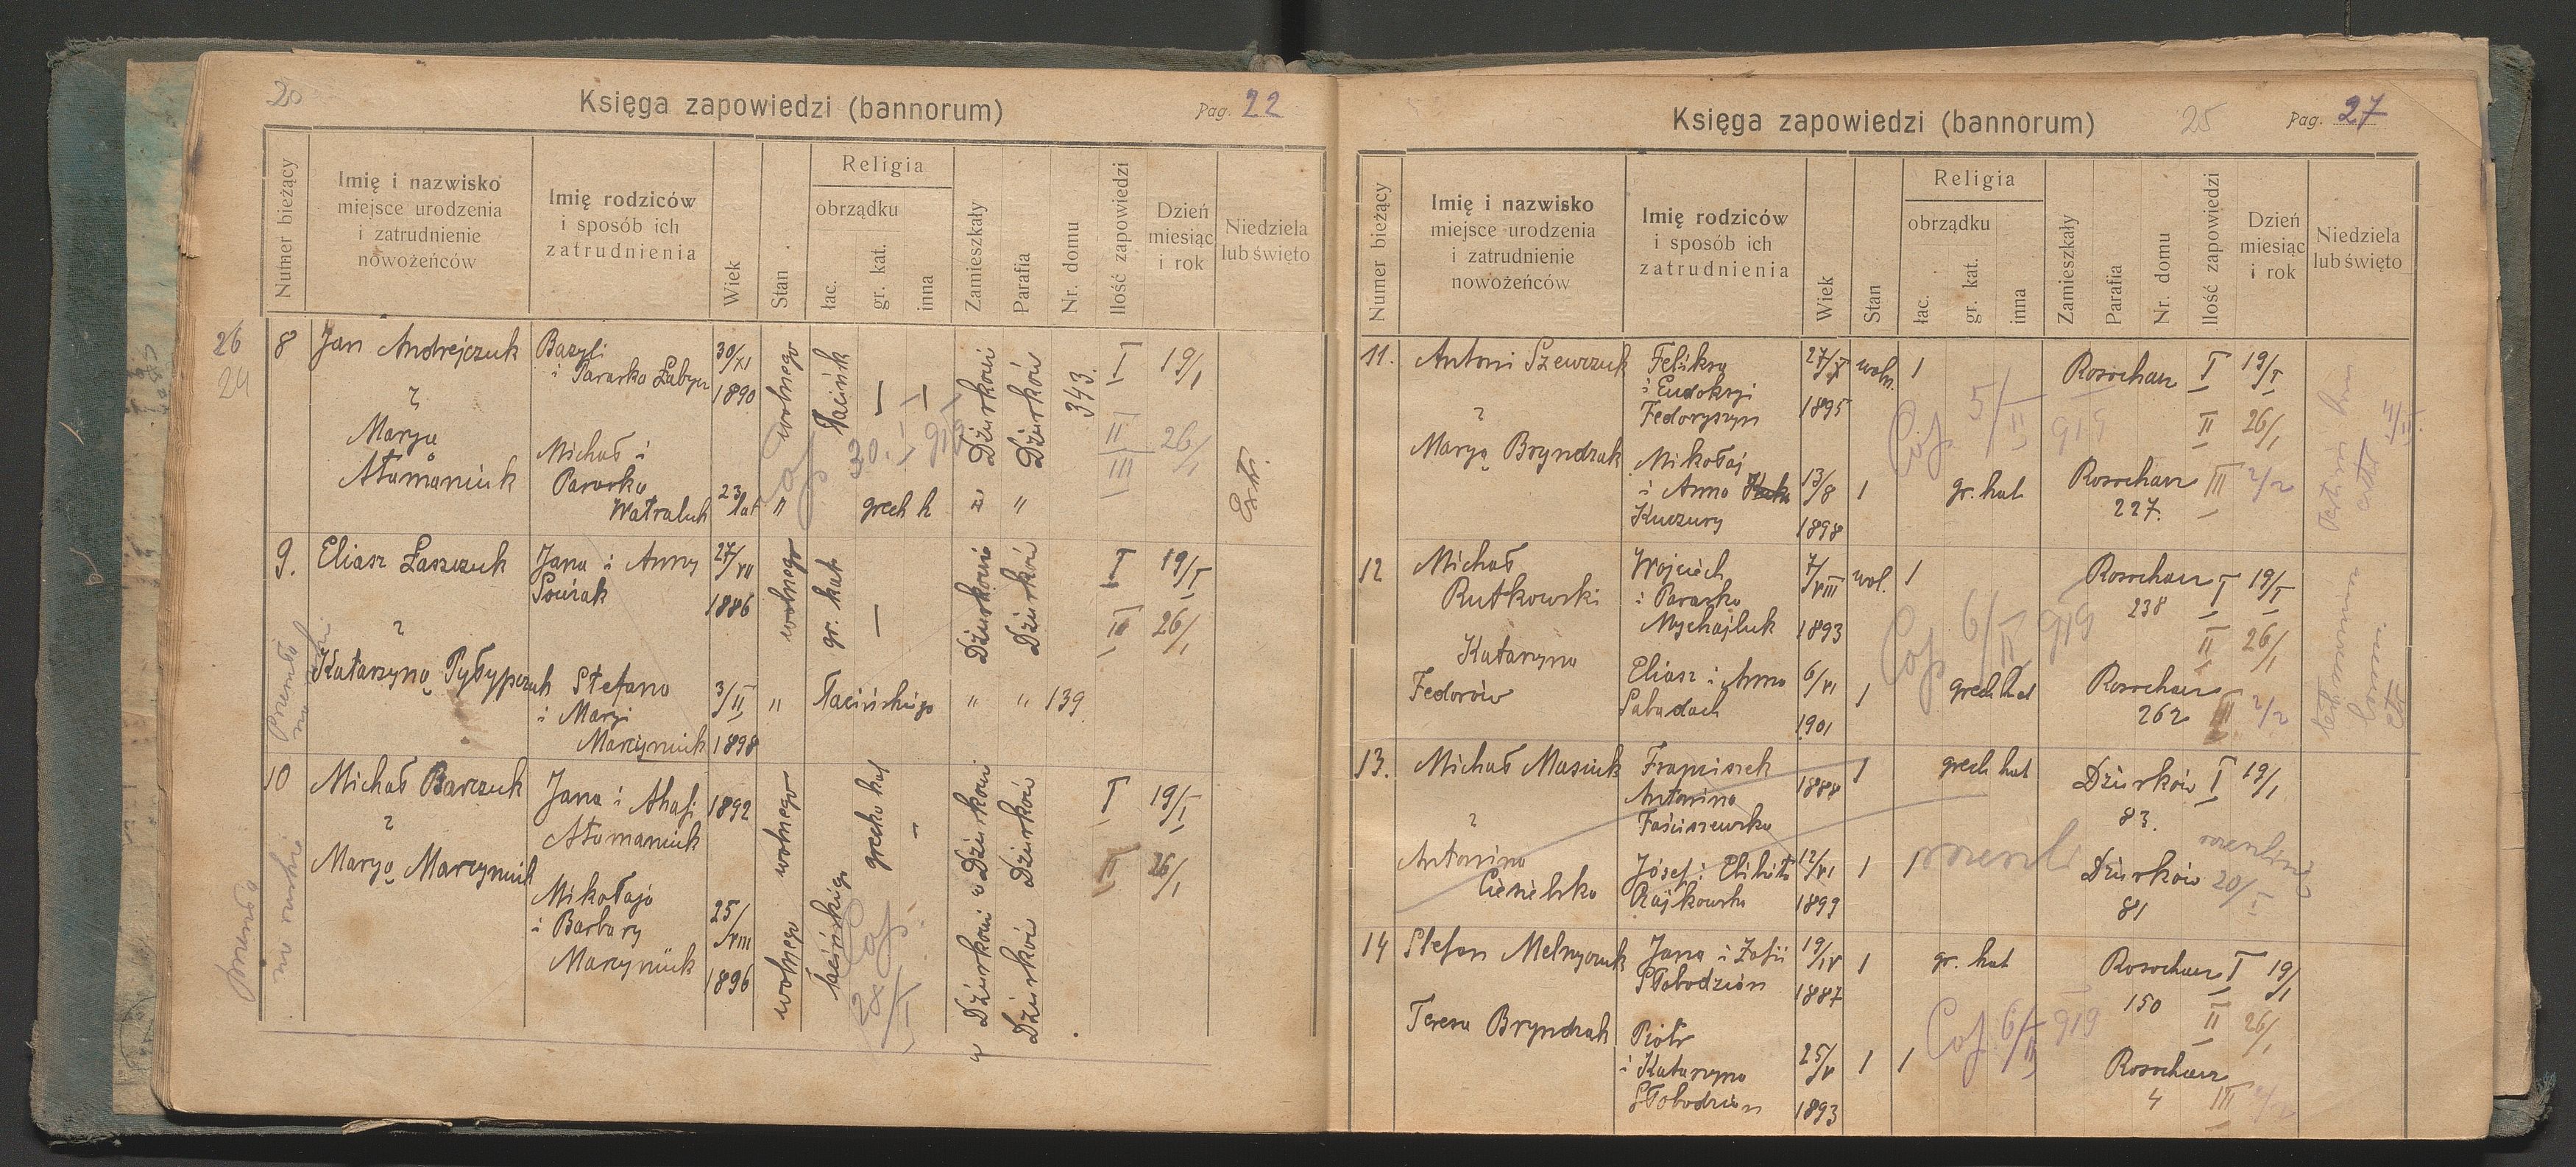 20
Księga zapowiedzi (bannorum)
Pag. 22
Numer bieżący
Imię i nazwisko
miejsce urodzenia
i zatrudnienie
nowożeńców
Imię rodziców
i sposób ich
zatrudnienia
Wiek
Stan
Religia
obrządku
łac.
gr. kat.
inna
Zamieszkały
Parafia
Nr. domu
Ilość zapowiedzi
Dzień
miesiąc
i rok
Niedziela
lub święto
26
24
8
Jan Andrejczuk
z
Marya
Atamaniuk
Bazyli
i Paraska
Michał i
Paraska
Watraluk
30/XI
1890
23
lat
wolnego
"
łacińsk
— —
30. I 919
grech k
Dżurkowie
Dżurków
" "
343.
I
II
III
19/I
26/I
9.
Eliasz Łaszczuk
z
Katarzyną Pyłypczuk
Jana i Anny
Stefana
i Maryi
Marcyniuk
27/VII
1886
3/II
1898
wolnego
"
gr. kat
—
łacińskiego
Dżurkowie
Dżurków
" " 139
I
II
19/I
26/I
10
Michał Barczuk
z
Maryą Marcyniuk
Jana i Ahafi
Atamaniuk
Mikołaja
i Barbary
Marcyniuk
1892
25/VIII
1896
wolnego
wolnego
grecko kat
–
łacińskiego
28/I
w Dżurkowie
Dżurków
w Dżurkowie
Dżurków
I
II
19/I
26/I
Księga zapowiedzi (bannorum)
25
Pag. 27
Numer bieżący
Imię i nazwisko
miejsce urodzenia
i zatrudnienie
nowożeńców
Imię rodziców
i sposób ich
zatrudnienia
Wiek
Stan
Religia
obrządku
łac.
gr. kat.
inna
Zamieszkały
Parafia
Nr. domu
Ilość zapowiedzi
Dzień
miesiąc
i rok
Niedziela
lub święto
11.
Antoni Szewczuk
z
Maryą Bryndzak
Feliksa
i Eudoksyi
Fedoryszyn
Mikołaj
i Anna
Kuczury
27/X
1895
13/8
1898
woln.
1
1
5/II 919
gr. kat
Rosochacz
Rosochacz
227.
I
II
III
19/I
26/I
2/2
12
Michał
Rutkowski
Katarzyna
Fedorów
Wojciech
i Paraska
Mychajluk
Eliasz i Anna
Sabadach
7/VIII
1893
6/VI
1901
wol.
1
1
6/II 919
grech kat
Rosochacz
238
Rosochacz
262
I
II
III
19/I
26/I
2/2
13.
Michał Masiuk
z
Antonina
Franciszek
Antonina
Józef i Elżbieta
Rajkowska
1888
12/VI
1899
1
1
1
grech kat
Dżurków
83.
Dżurków
81
I
19/I
14
Stefan Melnyczuk
Teresa Bryndzak
Jana i Zofii
Słobodzian
Piotr
i Katarzyna
Słobodzian
19/IV
1887
25/V
1893
1
1
1
gr. kat
6/II 919
Rosochacz
150
Rosochacz
4
I
II
III
19/I
26/I